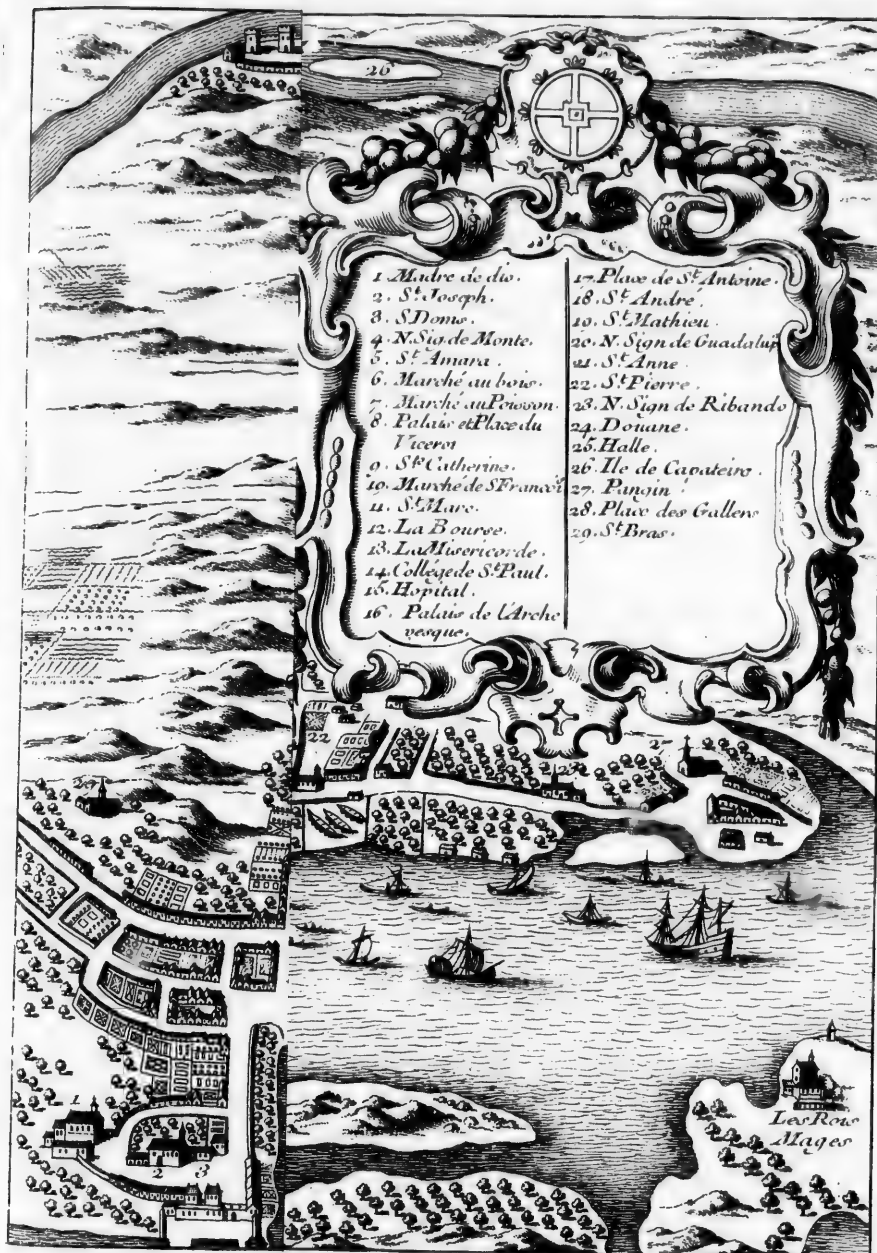 26
1. Madre de dio.
2. St. Joseph.
3. S. Doms.
4. N. Sig. de Monte.
5. St. Amara.
6. Marché au bois.
7. Marché au Poisson.
8. Palais et Place du
Viceroi
9. Ste. Catherine.
10. Marché de S. François
11. St. Marc.
12. La Bourse.
13. La Misericorde.
14. Collége de St. Paul.
15. Hopital.
16. Palais de l'Arche
vesque.
17. Place de St. Antoine.
18. St. André.
19. St. Mathieu.
20. N. Sign de Guadalup
21. St. Anne.
22. St. Pierre.
23. N. Sign de Ribando
24. Douane.
25. Halle.
26. Ile de Capateiro.
27. Pangin.
28. Place des Gallers
29. St. Bras.
22
23
27
1
2
3
Les Rois
Mages